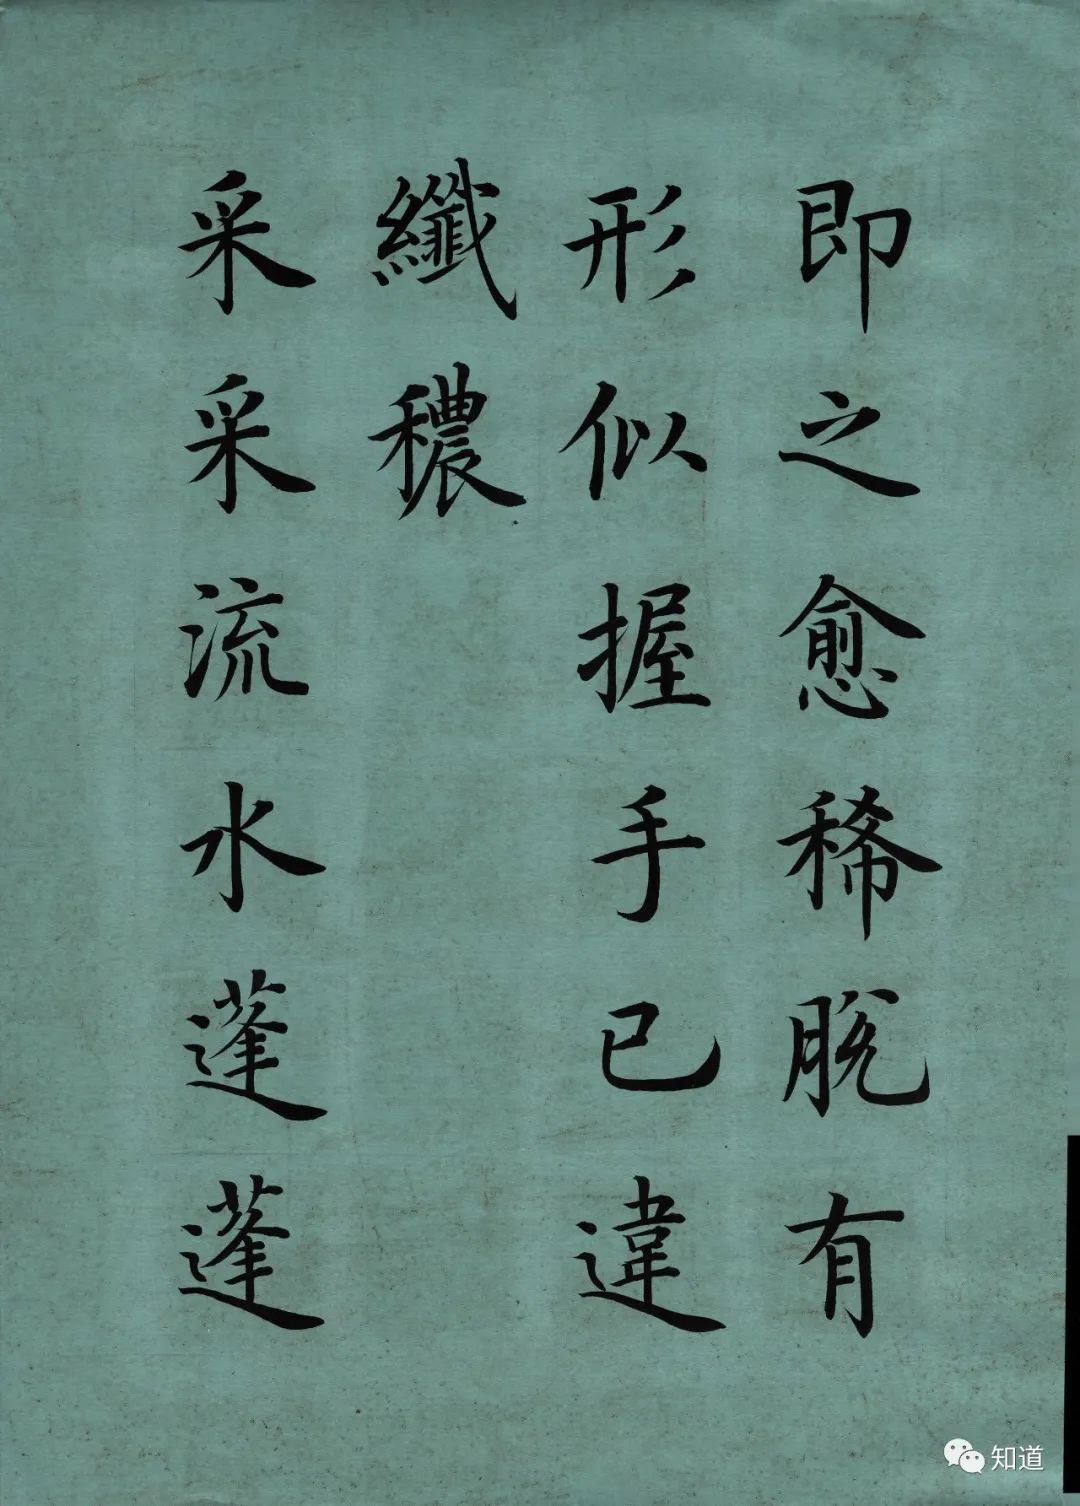 即之愈稀脫有
形似握手已違
纖穠
采采流水蓬蓬
知道